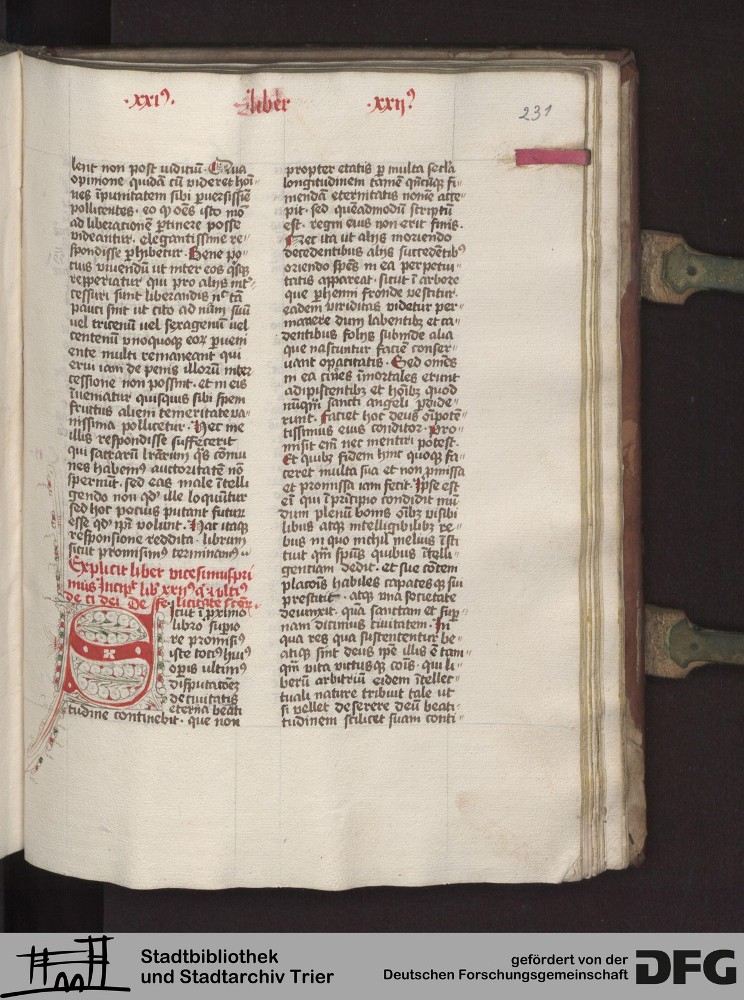 ·xxiꝰ· liber ·xxijꝰ
231
lerit non post iudiciū · Qua
opinione quidā cū videret hoī⸗
nes īpunitatem sibi ꝑuersissīe
pollicentes · eo ꝙ oēs isto mō
ad liberacionē ꝑtinere posse
videantur · elegantissime re⸗
spondisse ꝑhibetur · Bene po⸗
cius viuendū ut inter eos qͥsqꝫ
repperiatur qui pro alijs int͛⸗
cessuri sunt liberandis nͨ tā
pauci sint ut cito ad nūm suū
uel tricenū uel sexagenū uel
centenū vnoquoqꝫ eoꝝ ꝑueni
ente multi remaneant qui
erui iam de penis illorū inter
cessione non possint · et in eis
īueniatur quisquis sibi spem
fructus alieni temeritate va⸗
nissima pollicetur · Hec me
illis respondisse suffecerit
qui sacrarū lr̄arum qͣs cōmu
nes habemꝰ auctoritatē nō
spernūt · sed eas male ītelli
gendo non qd̓ ille loquūtur
sed hoc pocius putant futuꝝ
esse qd̓ ipī volunt · Hac itaqꝫ
responsione reddita · librum
sicut promisimꝰ terminamꝰ
Explicit liber vicesimuspri
mus Incipit lib̓ xxijꝰ ⁊ vltiꝰ
de ci dei De felicitate sc̄oꝝ ·
Sicut ī ꝓximo
libro suꝑio
re promisiꝰ
iste tociꝰ huiꝰ
oꝑis ultimꝰ
disputacōeꝫ
de ciuitatis
eterna beati
tudine continebit · que non
propter etatis ꝑ multa secl̓a
longitudinem tamē qn̄cūqꝫ fi⸗
niendā eternitatis nomē acce
pit · sed quēadmodū scriptū
est · regni eius non erit finis ·
Nec ita ut alijs moriendo
decedentibus alijs succedētibꝰ
oriendo spēs in ea perpetui⸗
tatis appareat · sicut ī arbore
que ꝑhenni fronde vestitur
eadem viriditas videtur per⸗
manere dum labentibꝫ et ca⸗
dentibus folijs subinde alia
que nascuntur faciē conser⸗
uant opacitatis · Sed omēs
in ea ciues īmortales erunt
adipiscentibꝫ et hoībꝫ quod
nūqͣm sancti angeli ꝑdide⸗
runt · Faciet hoc deus oīpotē⸗
tissimus eius conditor · Pro⸗
misit em̄ nec mentiri potest ·
Et quibꝫ fidem hinc quoqꝫ fa⸗
ceret multa sua et non ꝓmissa
et promissa iam fecit · Ipse est
eī qui ī principio condidit mū⸗
dum plenū bonis oībꝫ visibi
libus atqꝫ intelligibilibꝫ re⸗
bus in quo nichil melius īsti
tuit qͣm spūs quibus ītelli⸗
gentiam dedit · et sue cōtem
placōis habiles capacesqꝫ sui
prestitit · atqꝫ vna societate
deuinxit · quā sanctam et suꝑ⸗
nam dicimus ciuitatem · In
qua res qua sustententur be⸗
atiqꝫ sint deus ip̄e illis ē tam⸗
qͣm vita victusqꝫ cōis · qui li⸗
berū arbitriū eidem ītellec⸗
tuali nature tribuit tale ut
si vellet deserere deū beati⸗
tudinem scilicet suam conti⸗
Stadtbibliothek
und Stadtarchiv Trier
gefördert von der
Deutschen Forschungsgemeinschaft
DFG